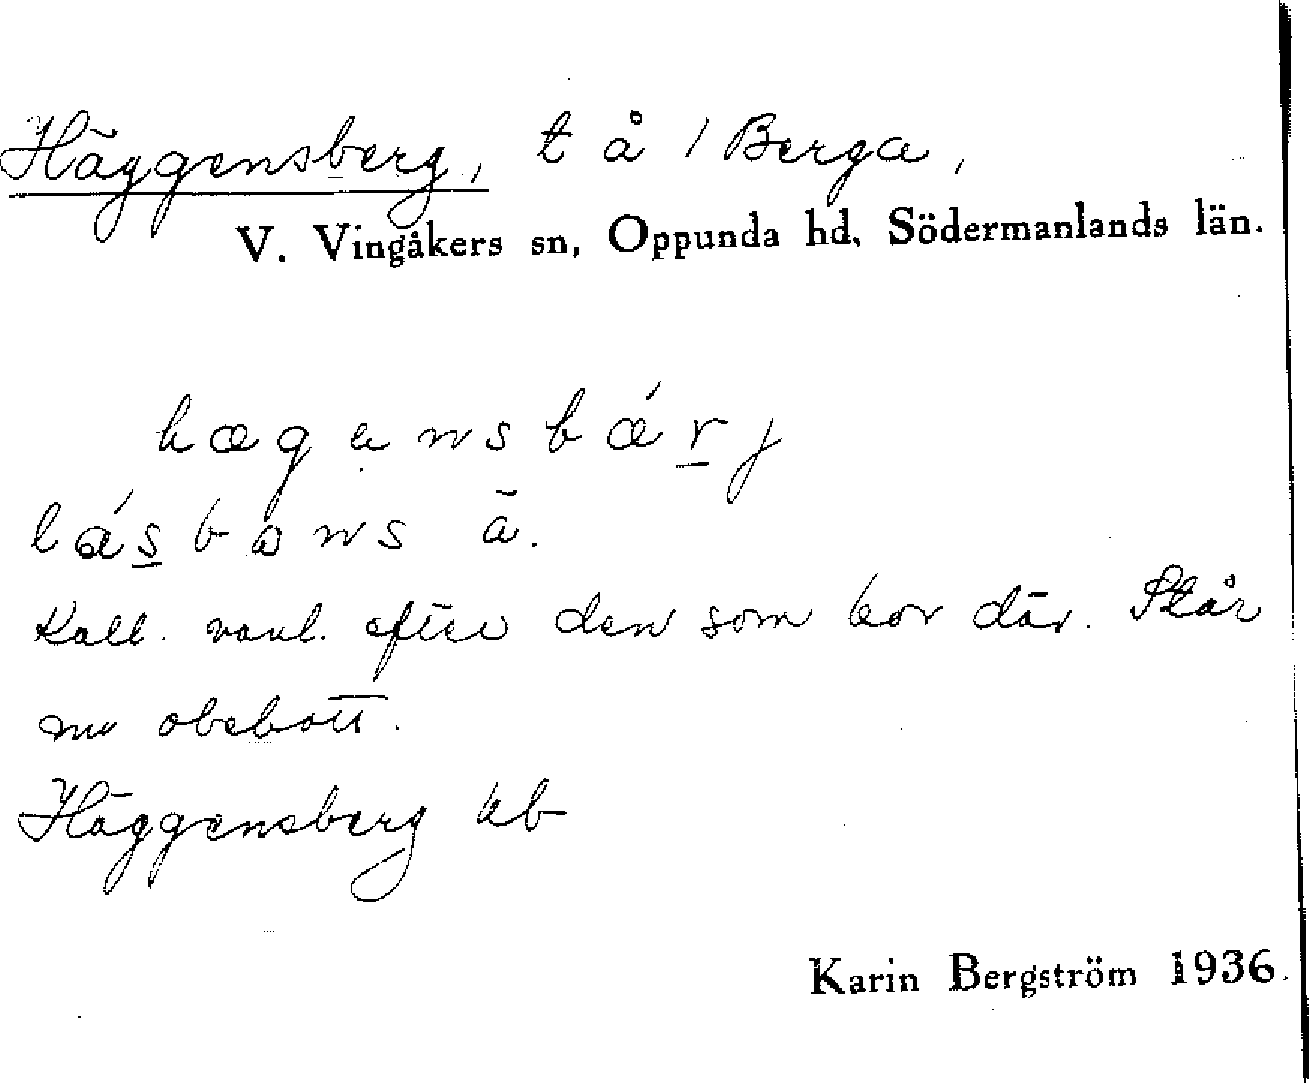 Häggensberg, t å 1 Berga,
V. Vingåkers sn, Oppunda hd, Södermanlands län.
hægɐnsbǽrj
lǽsbɷns ā.
Kall. vanl. efter den som bor där. Står
nu obebott.
Häggensberg kb
Karin Bergström 1936.